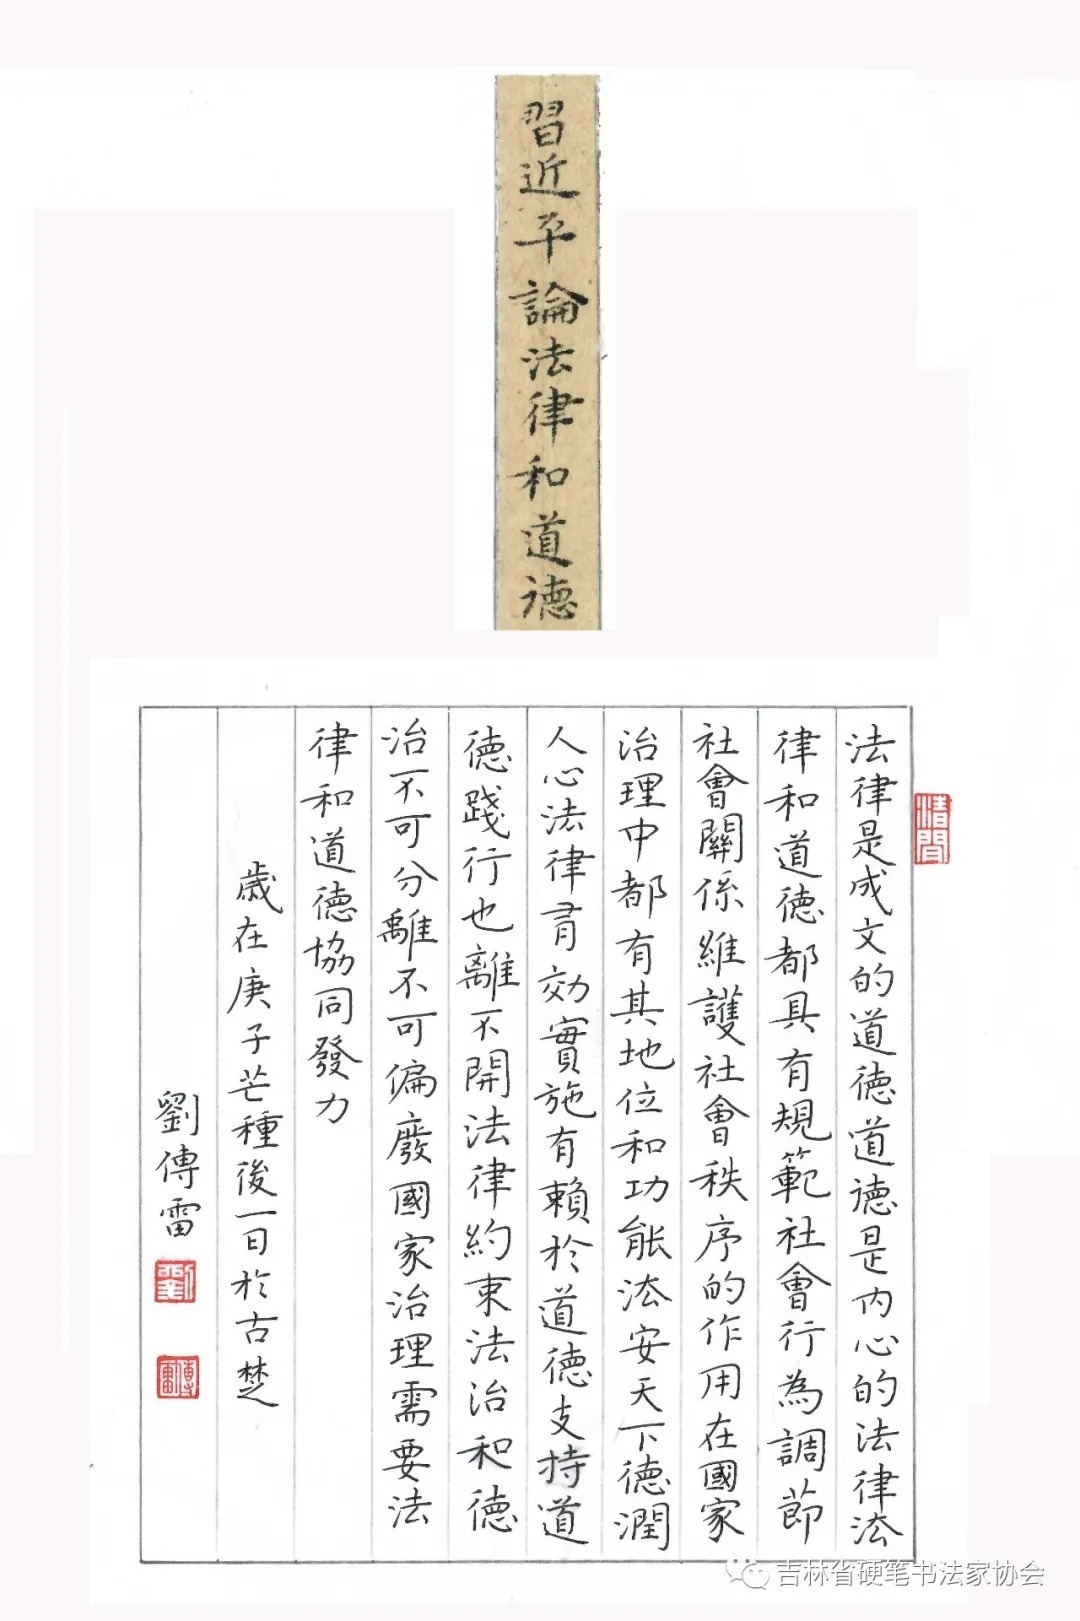 習近平論法律和道德
法律是成文的道德道德是内心的法律法
律和道德都具有規範社會行為調節
社會關係維護社會秩序的作用在國家
治理中都有其地位和功能法安天下德潤
人心法律有効實施有賴於道德支持道
德踐行也離不開法律約束法治和德
治不可分離不可偏廢國家治理需要法
律和道德協同發力
歲在庚子芒種後一日於古楚
劉傳雷
清閒
劉
傳雷
吉林省硬笔书法家协会